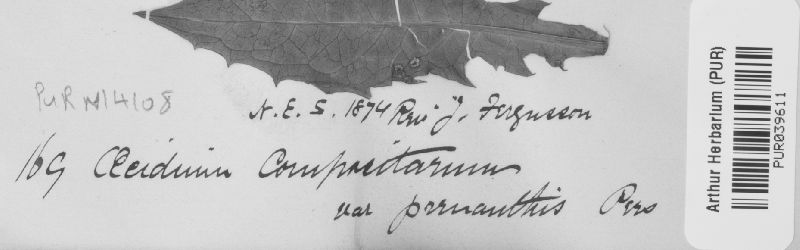 PUR N14108
N. E. S. 1874 Rev. J. Fergusson
169 Œcidium Compositarum
var prenanthis Pers
Arthur Herbarium (PUR)
PUR039611